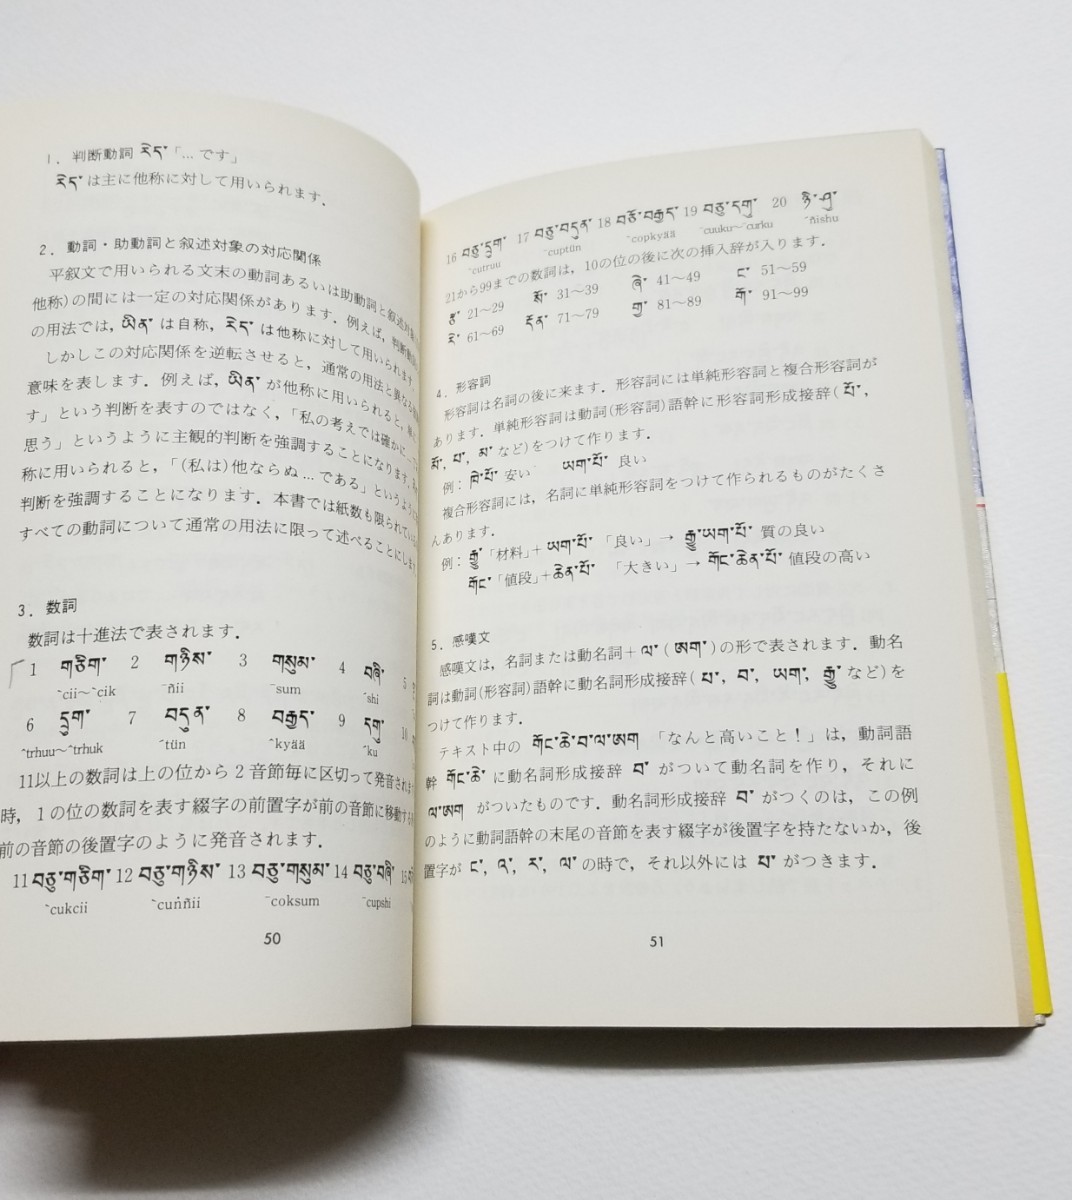 1．判断動詞 རེད་「…です」
རེད་ は主に他称に対して用いられます．
2．動詞・助動詞と叙述対象の対応関係
平叙文で用いられる文末の動詞あるいは助動詞と叙述対象
他称)の間には一定の対応関係があります．例えば，判断動詞
の用法では，ཡིན་ は自称，རེད་ は他称に対して用いられます．
しかしこの対応関係を逆転させると，通常の用法と異なる
意味を表します．例えば，ཡིན་ が他称に用いられると，
す」という判断を表すのではなく，「私の考えでは確かに…
思う」というように主観的判断を強調することになります．
称に用いられると，「(私は)他ならぬ…である」というよう
判断を強調することになります．本書では紙数も限られてい
すべての動詞について通常の用法に限って述べることにします
3．数詞
数詞は十進法で表されます．
1 གཅིག་ 2 གཉིས་ 3 གསུམ་ 4 བཞི་ 5
ˆcii～ˆcik ¯ñii ¯sum ˆshi
6 དྲུག་ 7 བདུན་ 8 བརྒྱད་ 9 དགུ་ 10
ˆtrhuu～ˆtrhuk ˆtün ˆkyää ˆku
11以上の数詞は上の位から2音節毎に区切って発音されます
時，1の位の数詞を表す綴字の前置字が前の音節に移動する
前の音節の後置字のように発音されます．
11 བཅུ་གཅིག་ 12 བཅུ་གཉིས་ 13 བཅུ་གསུམ་ 14 བཅུ་བཞི་ 15
ˆcukcii ˆcuṅñii ¯coksum ˆcupshi
50
16 བཅུ་དྲུག་ 17 བཅུ་བདུན་ 18 བཅོ་བརྒྱད་ 19 བཅུ་དགུ་ 20 ཉི་ཤུ་
ˆcutruu ˆcuptün ˆcopkyää ˆcuuku～ˆcurku ˆñishu
21から99までの数詞は，10の位の後に次の挿入辞が入ります．
རྩ་ 21～29 སོ་ 31～39 ཞེ་ 41～49 ང་ 51～59
རེ་ 61～69 དོན་ 71～79 གྱ་ 81～89 གོ་ 91～99
4．形容詞
形容詞は名詞の後に来ます．形容詞には単純形容詞と複合形容詞が
あります．単純形容詞は動詞(形容詞)語幹に形容詞形成接辞(པོ་，
མོ་，པ་，མ་ など)をつけて作ります．
例：ཁེ་པོ་ 安い ཡག་པོ་ 良い
複合形容詞には，名詞に単純形容詞をつけて作られるものがたくさ
んあります．
例：རྒྱུ་「材料」+ ཡག་པོ་「良い」→ རྒྱུ་ཡག་པོ་ 質の良い
གོང་「値段」+ ཆེན་པོ་「大きい」→ གོང་ཆེན་པོ་ 値段の高い
5．感嘆文
感嘆文は，名詞または動名詞+ ལ་(ཨག་)の形で表されます．動名
詞は動詞(形容詞)語幹に動名詞形成接辞(པ་，བ་，ཡག་，རྒྱུ་ など)を
つけて作ります．
テキスト中の གོང་ཆེ་བ་ལ་ཨག「なんと高いこと！」は，動詞語
幹 གོང་ཆེ་ に動名詞形成接辞 བ་ がついて動名詞を作り，それに
ལ་ཨག がついたものです．動名詞形成接辞 བ་ がつくのは，この例
のように動詞語幹の末尾の音節を表す綴字が後置字を持たないか，後
置字が ང་，འ་，ར་，ལ་ の時で，それ以外には པ་ がつきます．
51